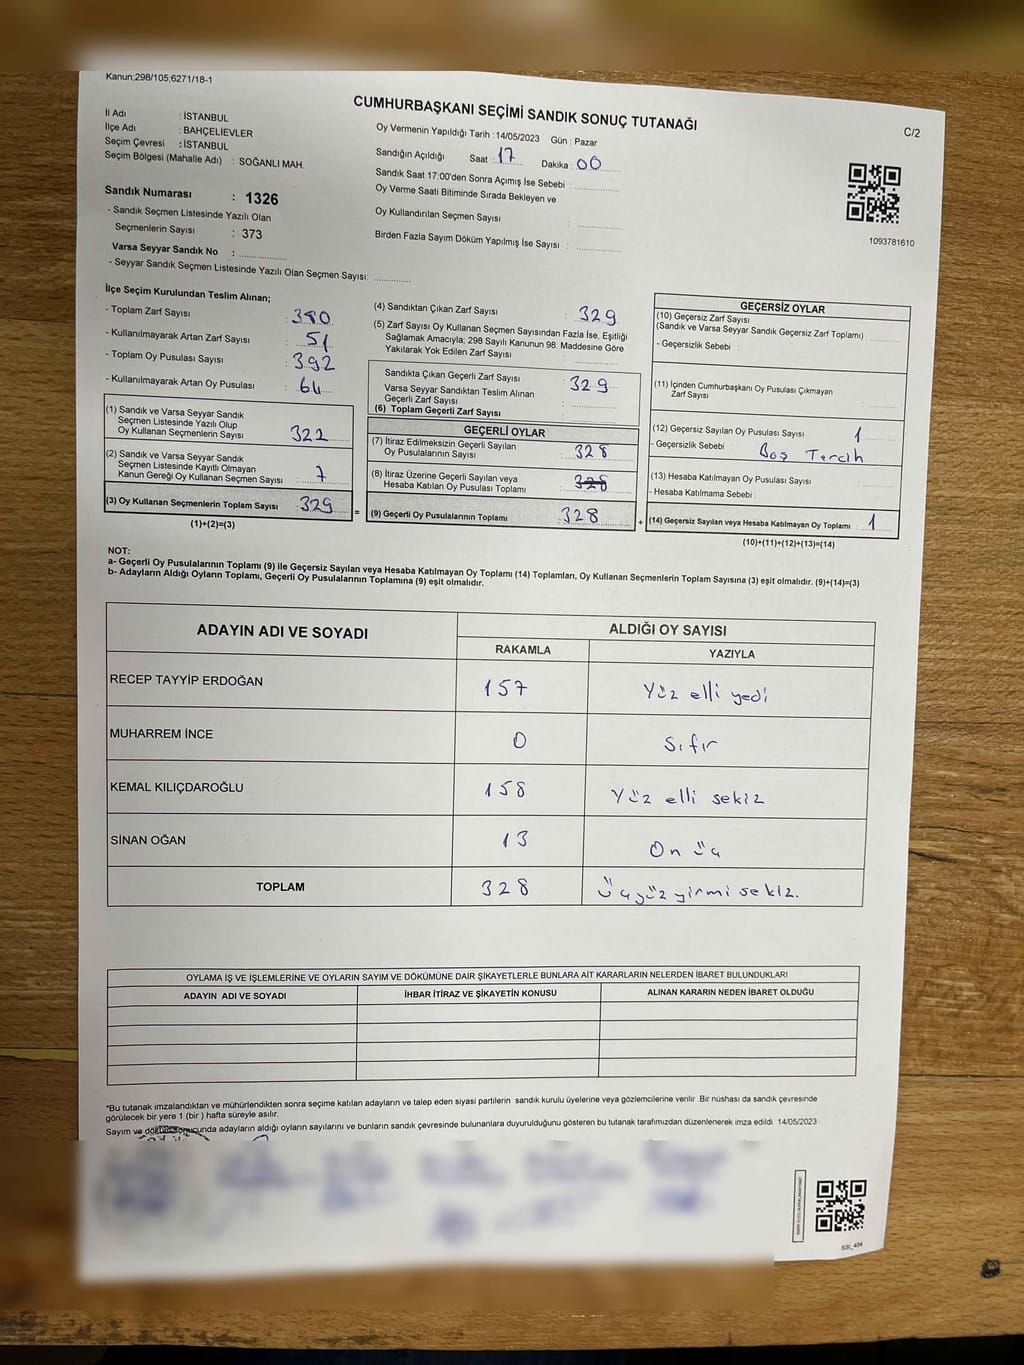 Kanun;298/105;6271/18-1
CUMHURBAŞKANI SEÇİMİ SANDIK SONUÇ TUTANAĞI
C/2
İl Adı : İSTANBUL
İlçe Adı : BAHÇELİEVLER
Seçim Çevresi : İSTANBUL
Seçim Bölgesi (Mahalle Adı) : SOĞANLI MAH.
Oy Vermenin Yapıldığı Tarih : 14/05/2023 Gün : Pazar
Sandığın Açıldığı Saat : 17 Dakika : 00
Sandık Saat 17:00'den Sonra Açımış İse Sebebi :
Oy Verme Saati Bitiminde Sırada Bekleyen ve
Oy Kullandırılan Seçmen Sayısı :
Birden Fazla Sayım Döküm Yapılmış İse Sayısı :
1093781610
Sandık Numarası : 1326
- Sandık Seçmen Listesinde Yazılı Olan
Seçmenlerin Sayısı : 373
Varsa Seyyar Sandık No :
- Seyyar Sandık Seçmen Listesinde Yazılı Olan Seçmen Sayısı:
İlçe Seçim Kurulundan Teslim Alınan;
- Toplam Zarf Sayısı : 380
- Kullanılmayarak Artan Zarf Sayısı : 51
- Toplam Oy Pusulası Sayısı : 392
- Kullanılmayarak Artan Oy Pusulası : 64
(1) Sandık ve Varsa Seyyar Sandık
Seçmen Listesinde Yazılı Olup
Oy Kullanan Seçmenlerin Sayısı : 322
(2) Sandık ve Varsa Seyyar Sandık
Seçmen Listesinde Kayıtlı Olmayan
Kanun Gereği Oy Kullanan Seçmen Sayısı : 7
(3) Oy Kullanan Seçmenlerin Toplam Sayısı : 329
(1)+(2)=(3)
(4) Sandıktan Çıkan Zarf Sayısı : 329
(5) Zarf Sayısı Oy Kullanan Seçmen Sayısından Fazla İse, Eşitliği
Sağlamak Amacıyla; 298 Sayılı Kanunun 98. Maddesine Göre
Yakılarak Yok Edilen Zarf Sayısı :
Sandıkta Çıkan Geçerli Zarf Sayısı : 329
Varsa Seyyar Sandıktan Teslim Alınan
Geçerli Zarf Sayısı :
(6) Toplam Geçerli Zarf Sayısı :
GEÇERLİ OYLAR
(7) İtiraz Edilmeksizin Geçerli Sayılan
Oy Pusulalarının Sayısı : 328
(8) İtiraz Üzerine Geçerli Sayılan veya
Hesaba Katılan Oy Pusulası Toplamı : 328
(9) Geçerli Oy Pusulalarının Toplamı : 328
= +
GEÇERSİZ OYLAR
(10) Geçersiz Zarf Sayısı
(Sandık ve Varsa Seyyar Sandık Geçersiz Zarf Toplamı) :
- Geçersizlik Sebebi :
(11) İçinden Cumhurbaşkanı Oy Pusulası Çıkmayan
Zarf Sayısı
(12) Geçersiz Sayılan Oy Pusulası Sayısı : 1
- Geçersizlik Sebebi : Boş Tercih
(13) Hesaba Katılmayan Oy Pusulası Sayısı :
- Hesaba Katılmama Sebebi :
(14) Geçersiz Sayılan veya Hesaba Katılmayan Oy Toplamı : 1
(10)+(11)+(12)+(13)=(14)
NOT:
a- Geçerli Oy Pusulalarının Toplamı (9) ile Geçersiz Sayılan veya Hesaba Katılmayan Oy Toplamı (14) Toplamları, Oy Kullanan Seçmenlerin Toplam Sayısına (3) eşit olmalıdır. (9)+(14)=(3)
b- Adayların Aldığı Oyların Toplamı, Geçerli Oy Pusulalarının Toplamına (9) eşit olmalıdır.
ADAYIN ADI VE SOYADI ALDIĞI OY SAYISI
RAKAMLA YAZIYLA
RECEP TAYYİP ERDOĞAN 157 Yüz elli yedi
MUHARREM İNCE 0 Sıfır
KEMAL KILIÇDAROĞLU 158 Yüz elli sekiz
SİNAN OĞAN 13 On üç
TOPLAM 328 Üçyüz yirmi sekiz.
OYLAMA İŞ VE İŞLEMLERİNE VE OYLARIN SAYIM VE DÖKÜMÜNE DAİR ŞİKAYETLERLE BUNLARA AİT KARARLARIN NELERDEN İBARET BULUNDUKLARI
ADAYIN ADI VE SOYADI İHBAR İTİRAZ VE ŞİKAYETİN KONUSU ALINAN KARARIN NEDEN İBARET OLDUĞU
*Bu tutanak imzalandıktan ve mühürlendikten sonra seçime katılan adayların ve talep eden siyasi partilerin sandık kurulu üyelerine veya gözlemcilerine verilir .Bir nüshası da sandık çevresinden
görülecek bir yere 1 (bir ) hafta süreyle asılır.
Sayım ve döküm sonucunda adayların aldığı oyların sayılarını ve bunların sandık çevresinde bulunanlara duyurulduğunu gösteren bu tutanak tarafımızdan düzenlenerek imza edildi 14/05/2023
SSI_404